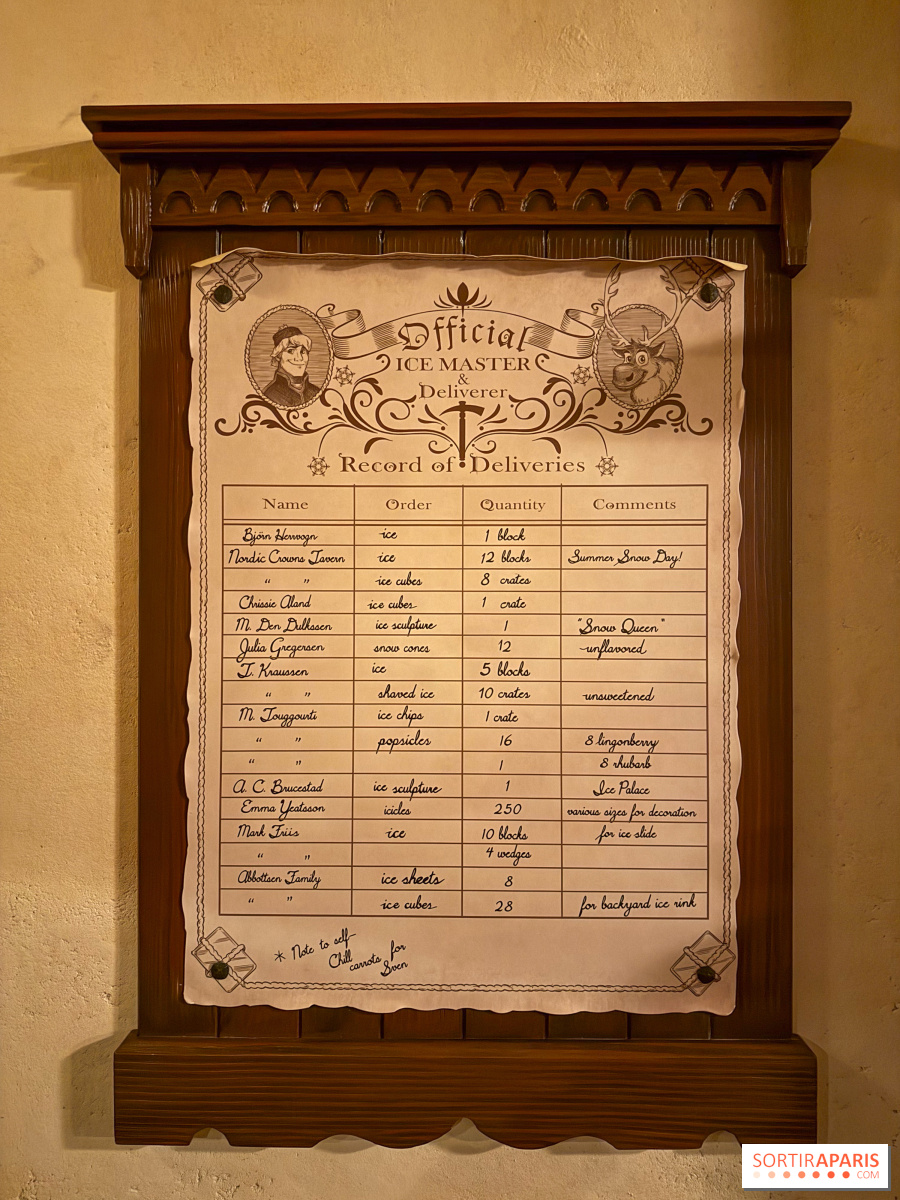 Official
ICE MASTER
&
Deliverer
Record of Deliveries
Name Order Quantity Comments
Björn Hervogn ice 1 block
Nordic Crowns Tavern ice 12 blocks Summer Snow Day!
" " ice cubes 8 crates
Chrissie Aland ice cubes 1 crate
M. Den Dulkssen ice sculpture 1 "Snow Queen"
Julia Gregersen snow cones 12 unflavored
T. Kraussen ice 5 blocks
" " shaved ice 10 crates unsweetened
M. Touggourti ice chips 1 crate
" " popsicles 16 8 lingonberry
" " 1 8 rhubarb
A. C. Brucestad ice sculpture 1 Ice Palace
Emma Yeatsson icicles 250 various sizes for decoration
Mark Friis ice 10 blocks for ice slide
" " 4 wedges
Abbottsen Family ice sheets 8
" " ice cubes 28 for backyard ice rink
* Note to self-
Chill carrots for
Sven
SORTIRAPARIS
.COM